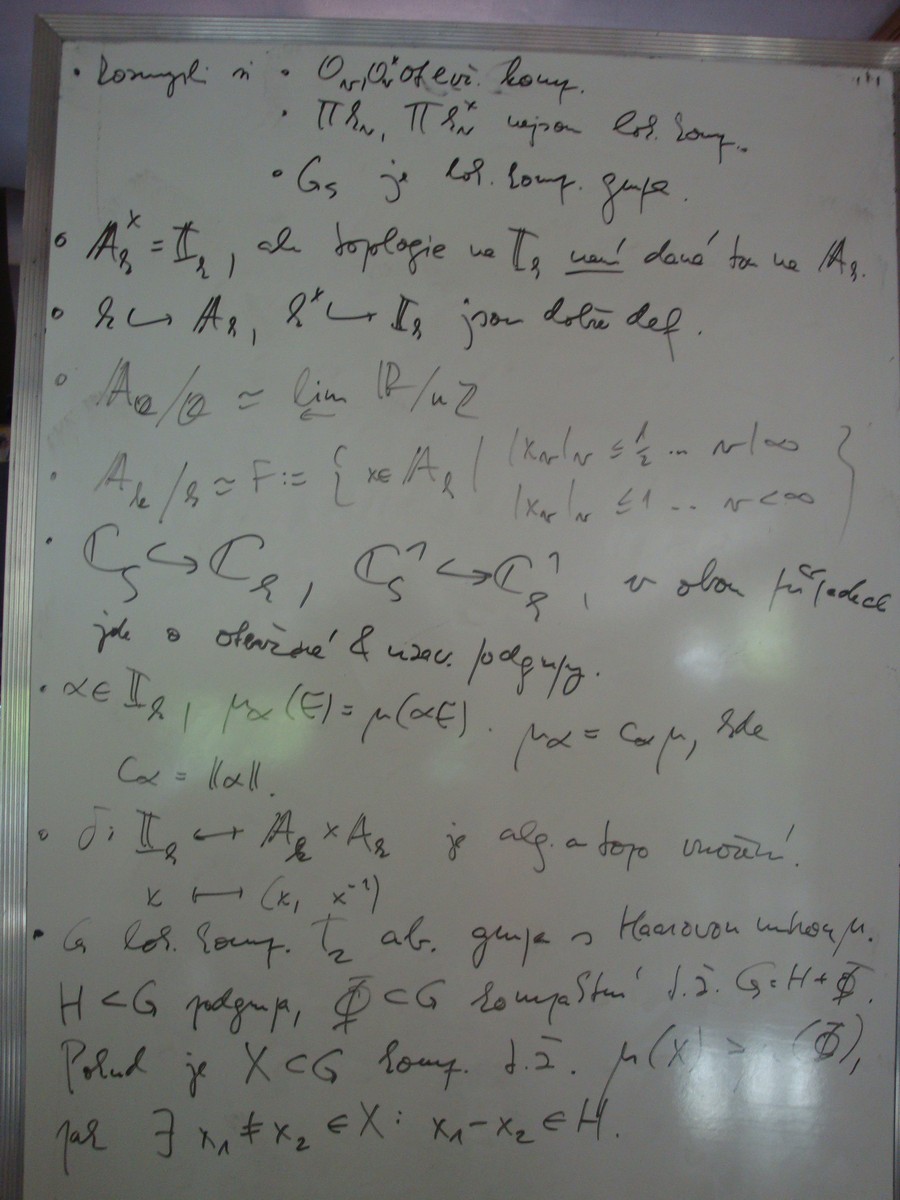 • Rozmysli si • O_v, O_v^× otevř. komp.
• ∏ k_v, ∏ k_v^× nejsou lok. komp.
• G_S je lok. komp. grupa.
• 𝔸_k^× = 𝕀_k, ale topologie na 𝕀_k není daná tou na 𝔸_k.
• k ↪ 𝔸_k, k^× ↪ 𝕀_k jsou dobře def.
• 𝔸_ℚ/ℚ ≃ lim← ℝ/nℤ
• 𝔸_k/k ≃ F := { x ∈ 𝔸_k | |x_v|_v ≤ 1/2 ... v|∞
|x_v|_v ≤ 1 ... v<∞ }
• C_S ↪ C_k, C_S^1 ↪ C_k^1, v obou případech
jde o otevřené & uzav. podgrupy.
• α ∈ 𝕀_k, μ_α(E) = μ(αE). μ_α = c_α μ, kde
c_α = ‖α‖.
• δ: 𝕀_k ↪ 𝔸_k × 𝔸_k je alg. a topo vnoření.
x ↦ (x, x^{-1})
• G lok. komp. T_2 ab. grupa s Haarovou mírou μ.
H < G podgrupa, Φ ⊂ G kompaktní t.ž. G = H + Φ.
Pokud je X ⊂ G komp. t.ž. μ(X) > μ(Φ),
pak ∃ x_1 ≠ x_2 ∈ X: x_1 - x_2 ∈ H.